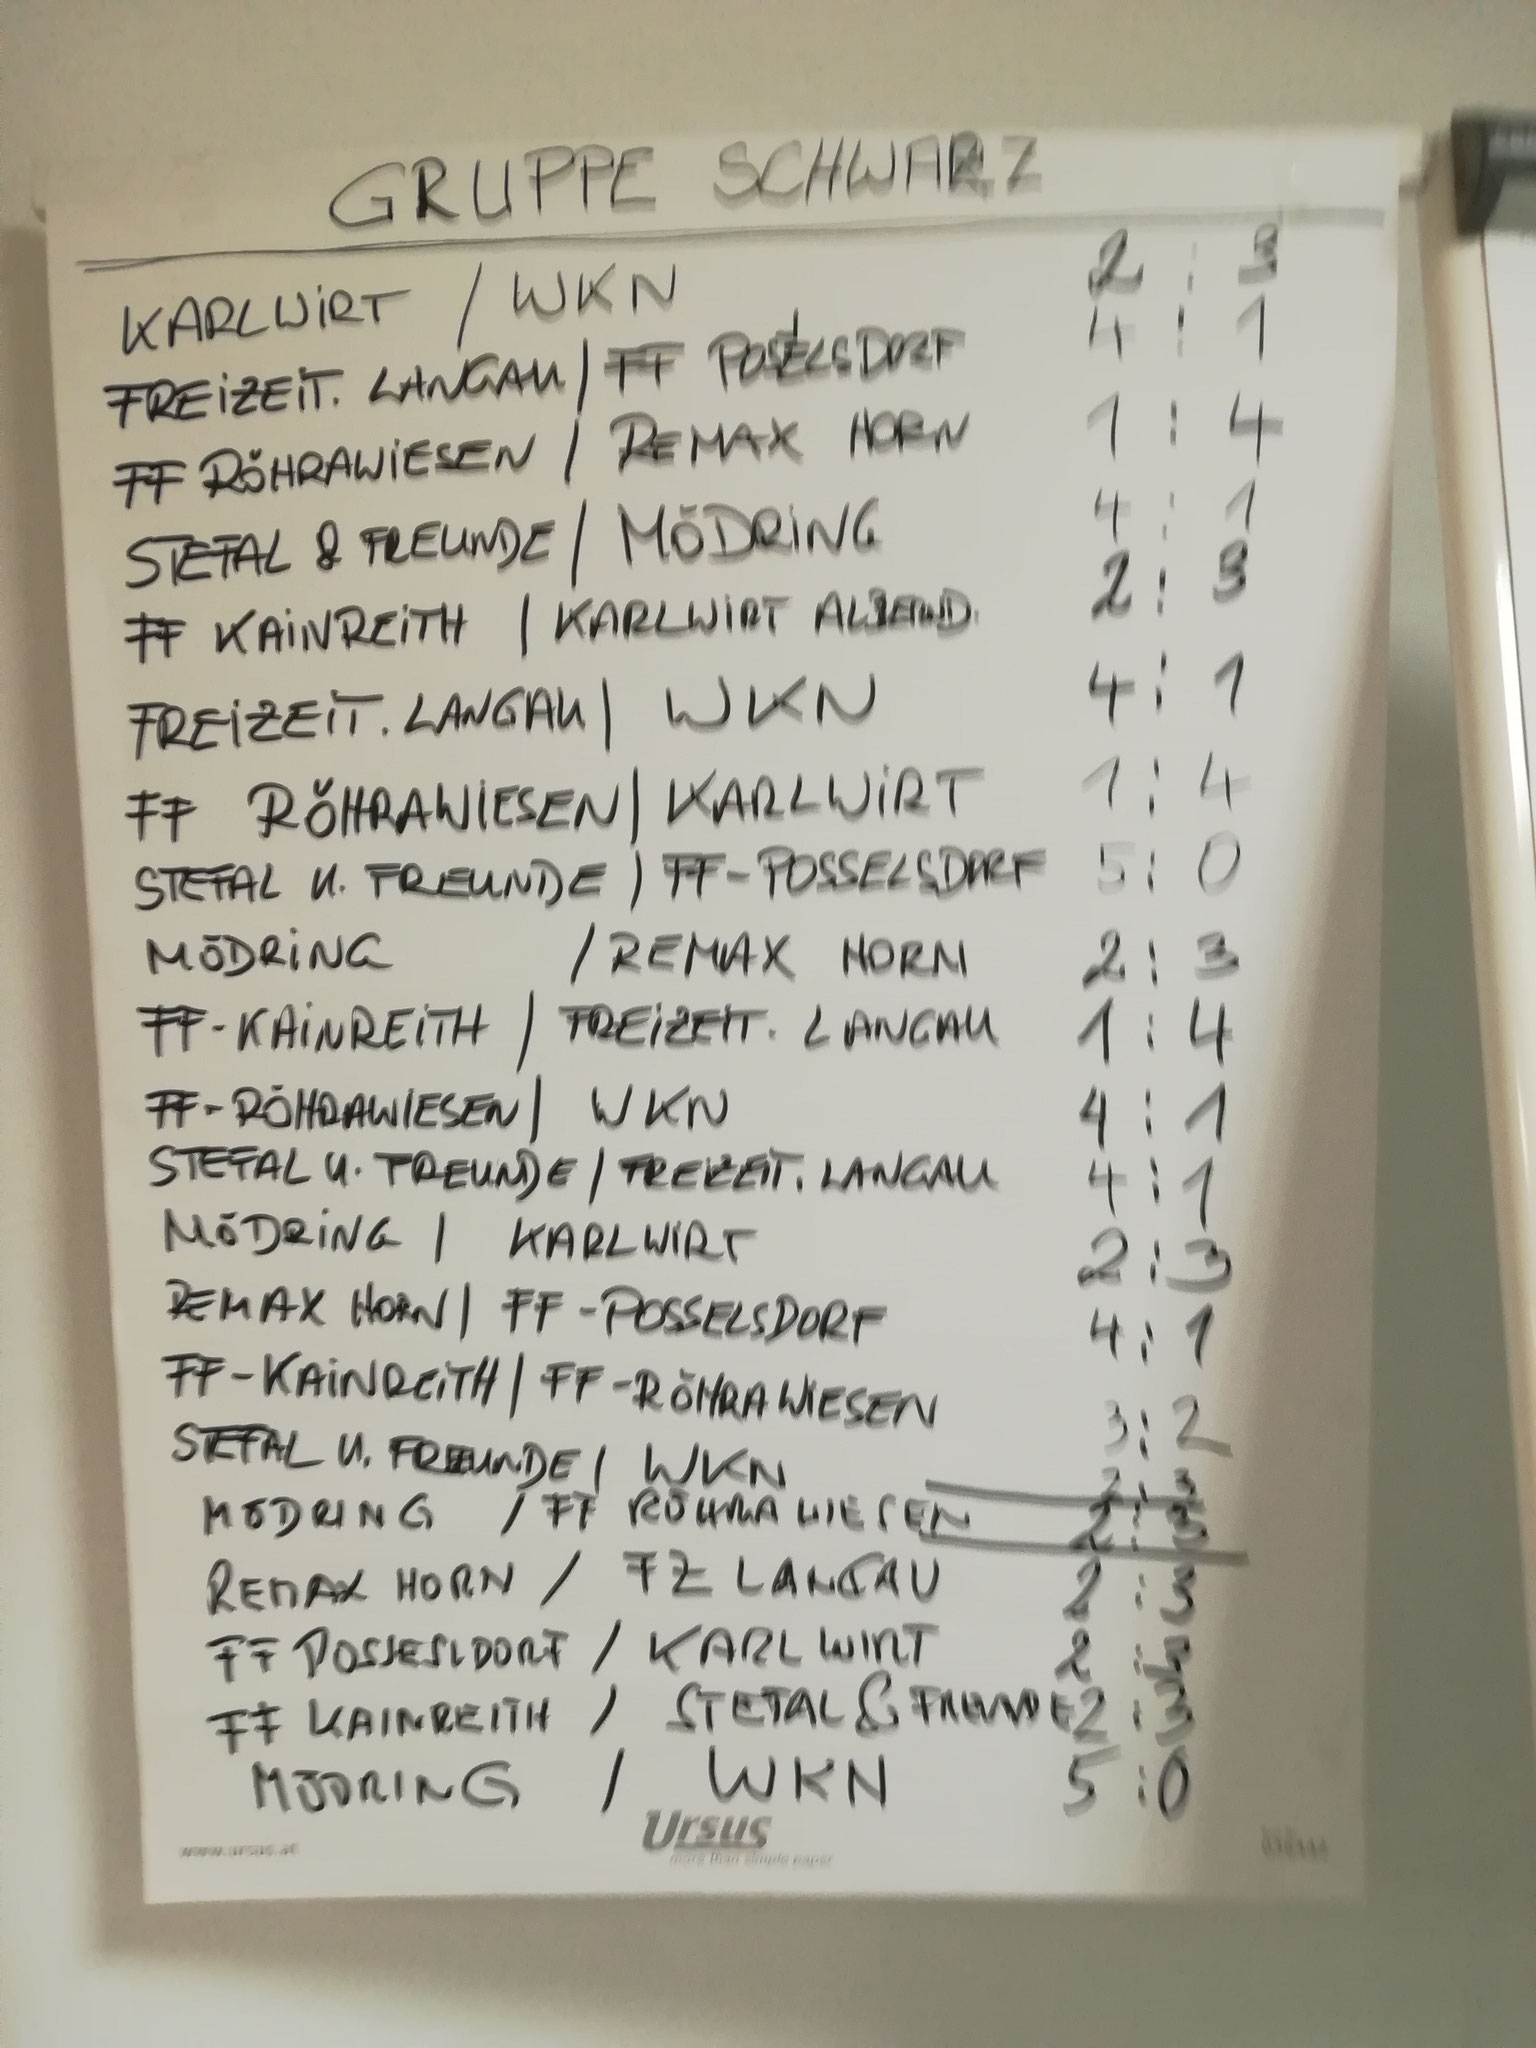 GRUPPE SCHWARZ
KARLWIRT / WKN 2 : 3
FREIZEIT. LANGAU / FF POSELSDORF 4 : 1
FF RÖHRAWIESEN / REMAX HORN 1 : 4
STEFAL & FREUNDE / MÖDRING 4 : 1
FF KAINREITH / KARLWIRT 2 : 3
FREIZEIT. LANGAU / WKN 4 : 1
FF RÖHRAWIESEN / KARLWIRT 1 : 4
STEFAL U. FREUNDE / FF-POSSELSDORF 5 : 0
MÖDRING / REMAX HORN 2 : 3
FF-KAINREITH / FREIZEIT. LANGAU 1 : 4
FF-RÖHRAWIESEN / WKN 4 : 1
STEFAL U. FREUNDE / FREIZEIT. LANGAU 4 : 1
MÖDRING / KARLWIRT 2 : 3
REMAX HORN / FF-POSSELSDORF 4 : 1
FF-KAINREITH / FF-RÖHRAWIESEN 3 : 2
STEFAL U. FREUNDE / WKN 2 : 3
MÖDRING / FF RÖHRAWIESEN 2 : 3
REMAX HORN / FZ LANGAU 2 : 3
FF POSSESLDORF / KARLWIRT 2 :
FF KAINREITH / STEFAL & FREUNDE 2 : 3
MÖDRING / WKN 5 : 0
Ursus
www.ursus.at
more than simple paper